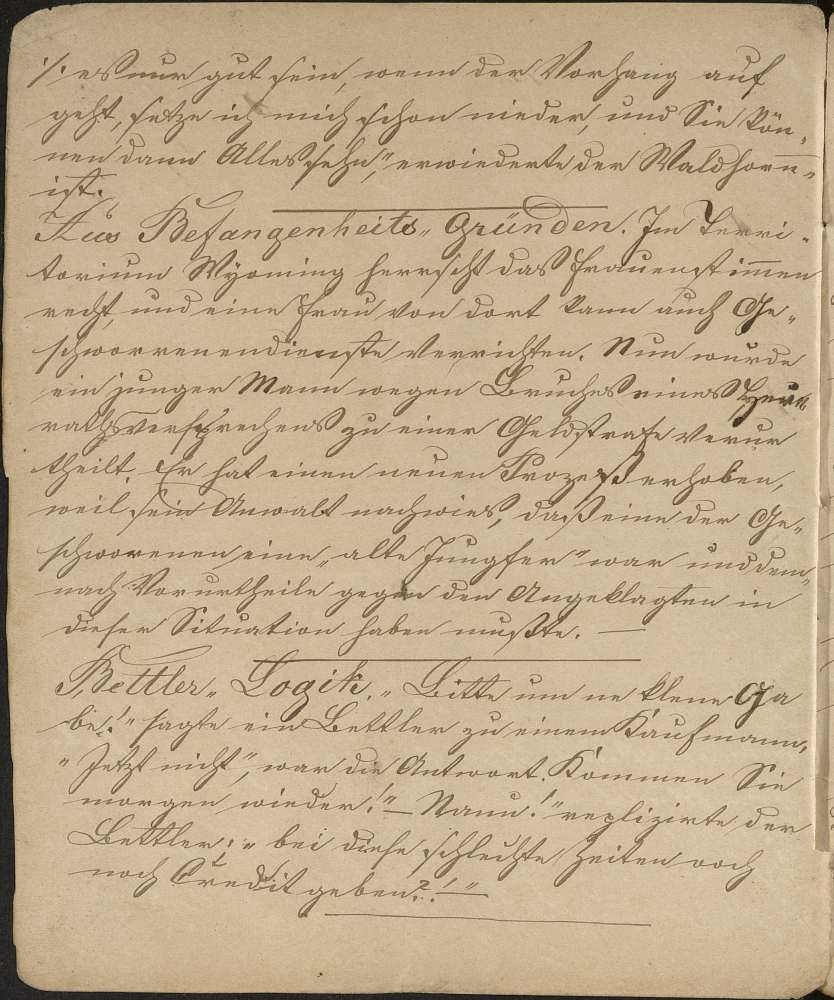 ./. es nur gut sein, wenn der Vorhang auf
geht, setze ich mich schon nieder, und Sie kön-
nen dann Alles sehn", erwiederte der Waldhorn-
ist.
Aus Befangenheits-Gründen. Im Terri-
torium Wyoming herrscht das Frauenstimmen
recht, und eine Frau von dort kann auch Ge-
schworrenendienste verrichten. Nun wurde
ein junger Mann wegen Bruches eines Hei-
rathsversprechens zu einer Geldstrafe verur
theilt. Er hat einen neuen Prozeß erhoben,
weil sein Anwalt nachwies, daß eine der Ge-
schworenen eine "alte Jungfer" war und dem-
nach Vorurtheile gegen den Angeklagten in
dieser Situation haben mußte. —
Bettler-Logik. "Bitte um ne klene Ga
be!" sagte ein Bettler zu einem Kaufmann,
"Jetzt nicht", war die Antwort. Kommen Sie
morgen wieder!" — Nanu!" replizirte der
Bettler: "bei diese schlechte Zeiten ooch
noch Credit geben?!" —